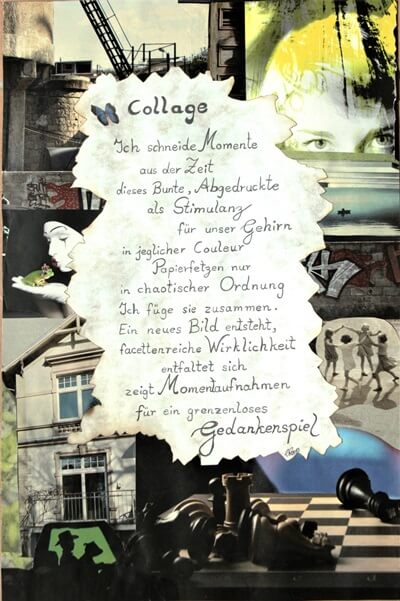 Collage
Ich schneide Momente
aus der Zeit
dieses Bunte, Abgedruckte
als Stimulanz
für unser Gehirn
in jeglicher Couleur
Papierfetzen nur
in chaotischer Ordnung
Ich füge sie zusammen.
Ein neues Bild entsteht,
facettenreiche Wirklichkeit
entfaltet sich
zeigt Momentaufnahmen
für ein grenzenloses
Gedankenspiel